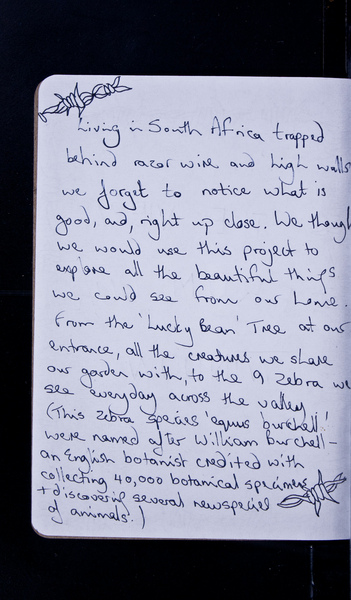 Living in South Africa trapped
behind razor wire and high walls
we forget to notice what is
good, and, right up close. We though
we would use this project to
explore all the beautiful things
we could see from our home.
From the 'Lucky Bean' Tree at our
entrance, all the creatures we share
our garden with, to the 9 Zebra we
see everyday across the valley
(This zebra species 'equus burchelli'
were named after William Burchell -
an English botanist credited with
collecting 40,000 botanical specimens
+ discovering several new species
of animals.)